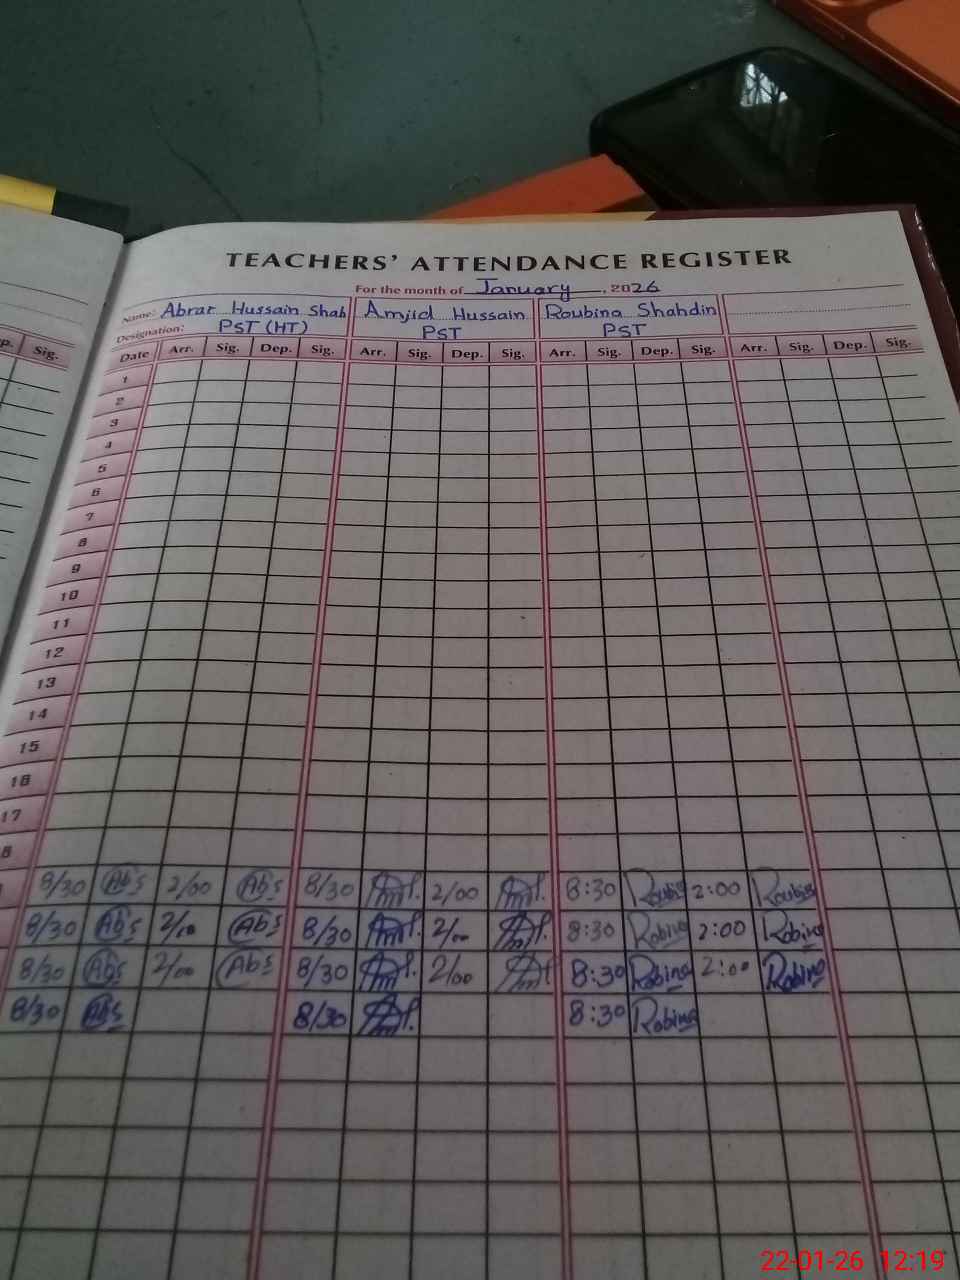 TEACHERS' ATTENDANCE REGISTER
For the month of January, 2026
Name: Abrar Hussain Shah Amjid Hussain Roubina Shahdin
Designation: PST (HT) PST PST
p. Sig.
Date Arr. Sig. Dep. Sig. Arr. Sig. Dep. Sig. Arr. Sig. Dep. Sig. Arr. Sig. Dep. Sig.
1
2
3
4
5
6
7
8
9
10
11
12
13
14
15
16
17
8
8/30 Abs 2/00 Abs 8/30 2/00 8:30 Roubina 2:00 Roubina
8/30 Abs 2/00 Abs 8/30 2/00 8:30 Robina 2:00 Robina
8/30 Abs 2/00 Abs 8/30 2/00 8:30 Robina 2:00 Robina
8/30 Abs 8/30 8:30 Robina
22-01-26 12:19